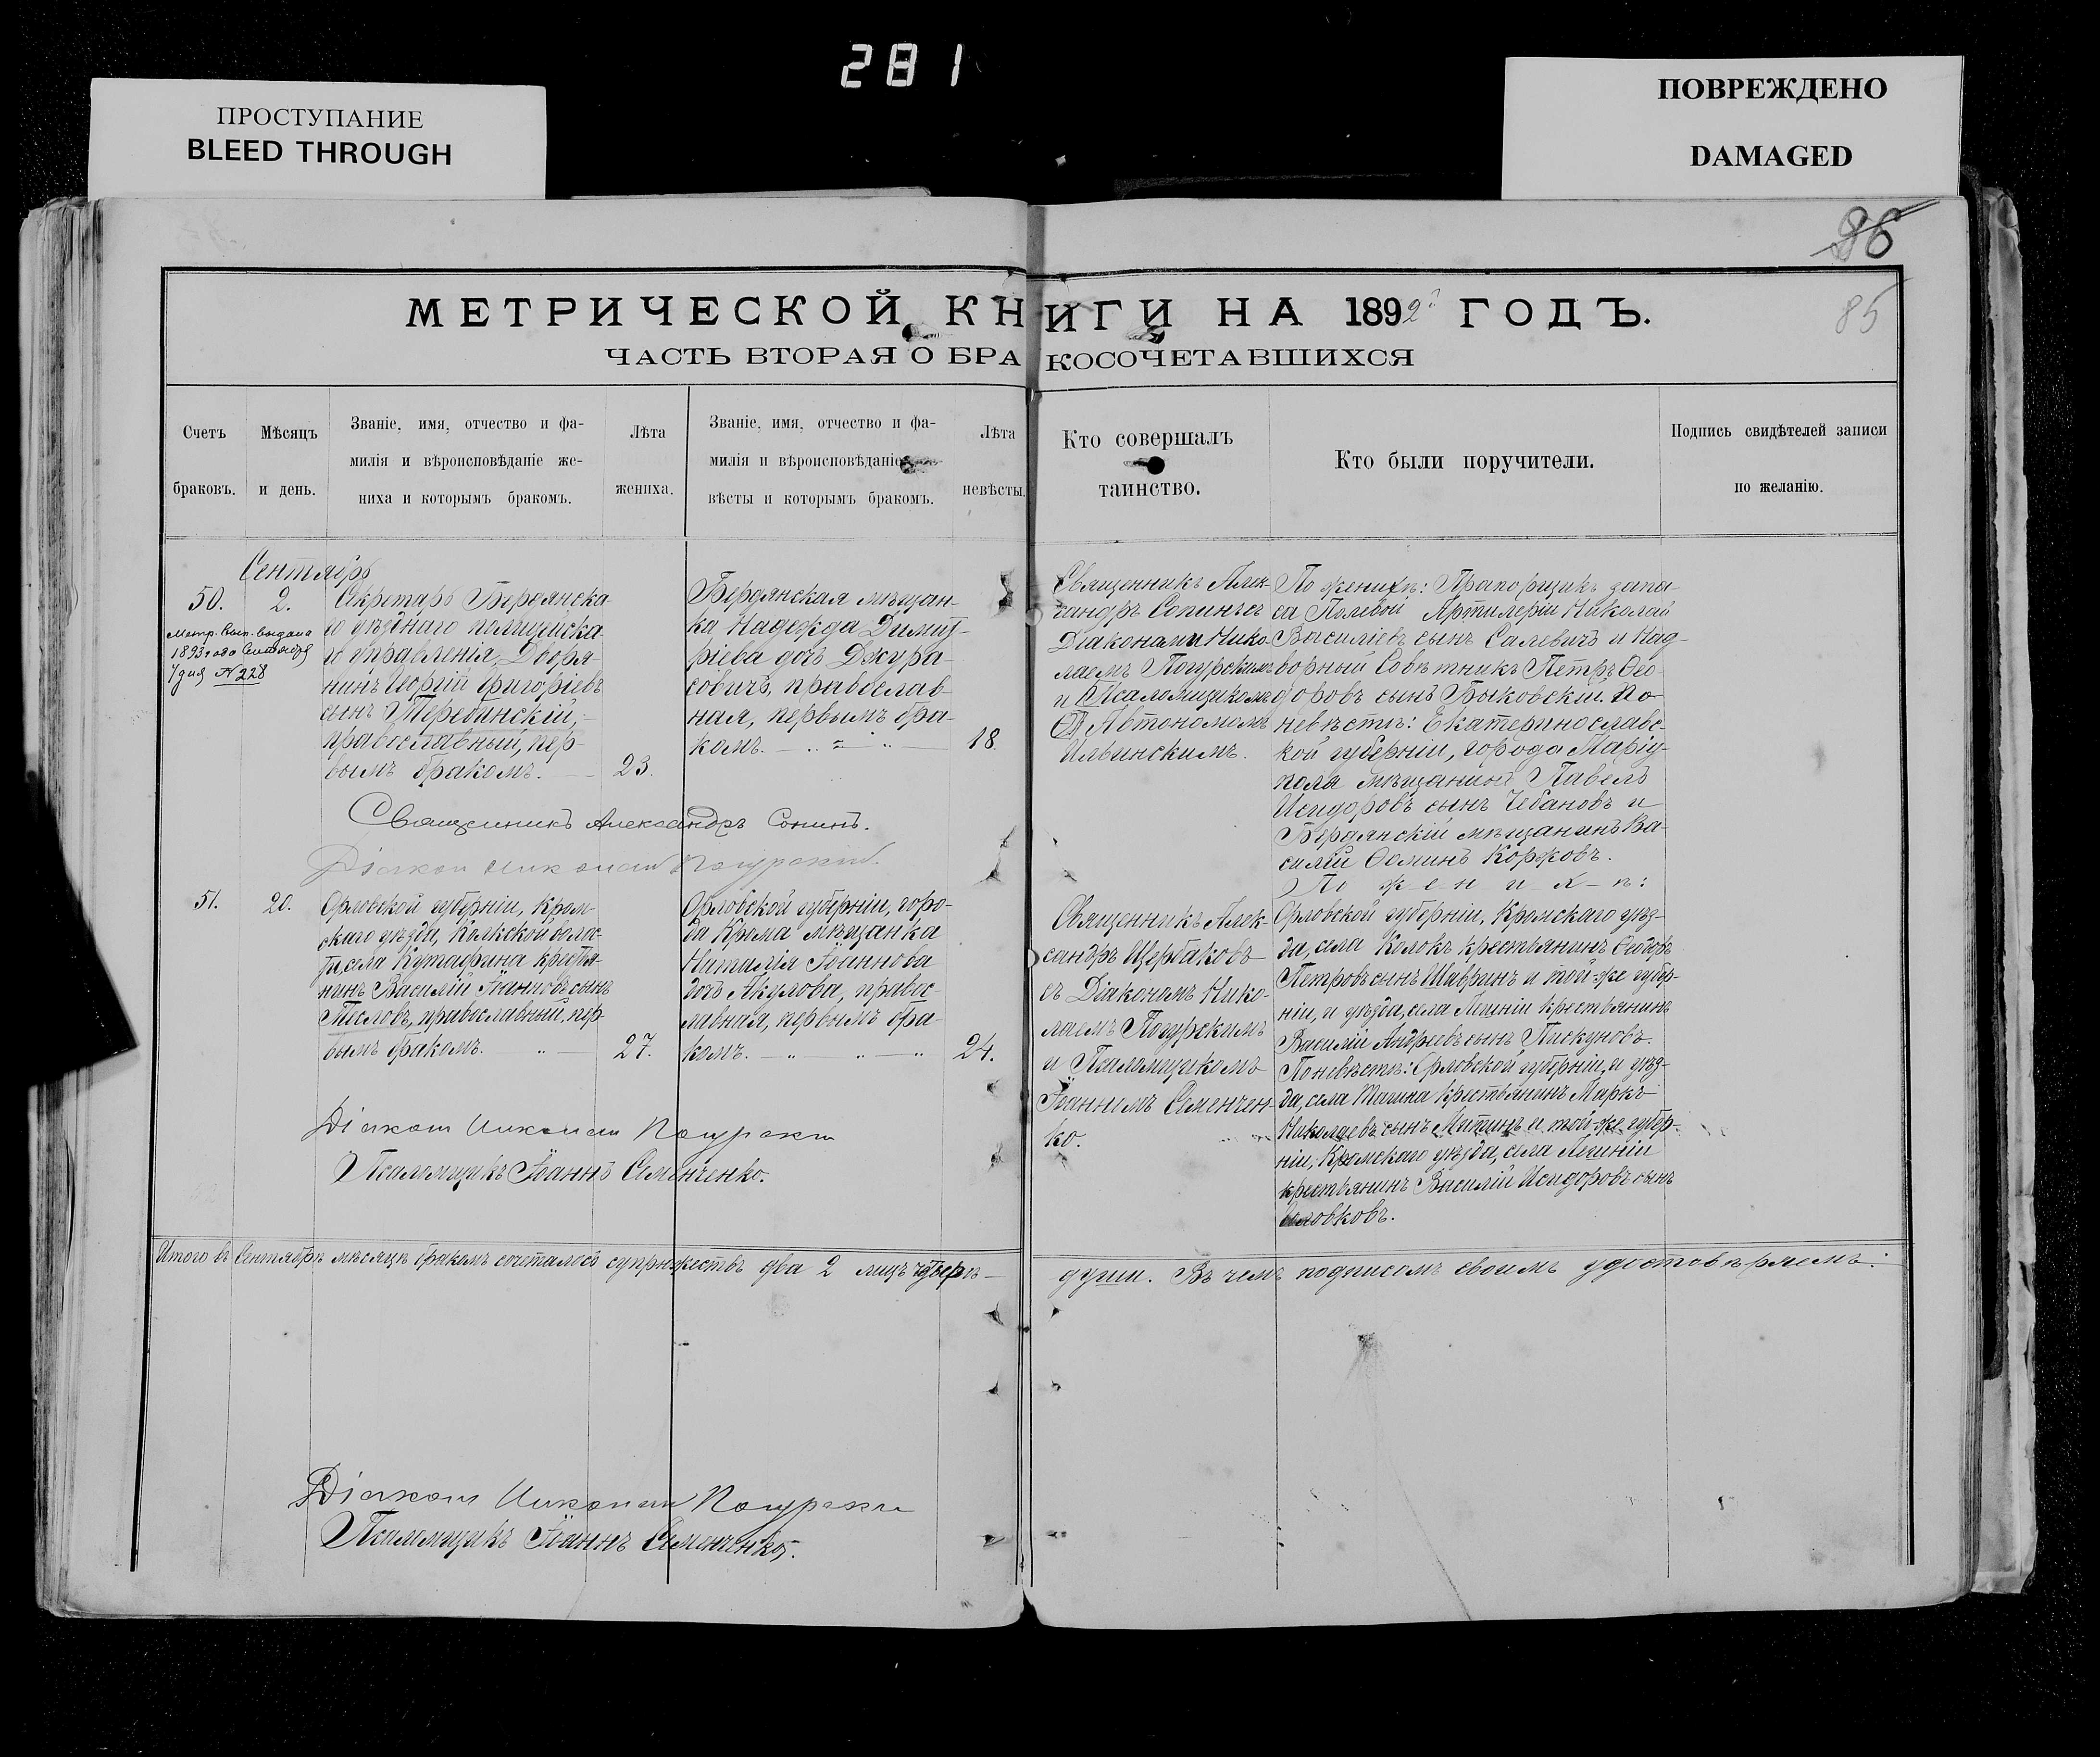 281
ПРОСТУПАНИЕ
BLEED THROUGH
ПОВРЕЖДЕНО
DAMAGED
86
85
МЕТРИЧЕСКОЙ КНИГИ НА 1892й ГОДЪ.
ЧАСТЬ ВТОРАЯ О БРАКОСОЧЕТАВШИХСЯ
Счетъ
браковъ.
Мѣсяцъ
и день.
Званіе, имя, отчество и фа-
милія и вѣроисповѣданіе же-
ниха и которымъ бракомъ.
Лѣта
жениха.
Званіе, имя, отчество и фа-
милія и вѣроисповѣданіе
вѣсты и которымъ бракомъ.
Лѣта
невѣсты.
Кто совершалъ
таинство.
Кто были поручители.
Подпись свидѣтелей записи
по желанію.
Сентябрь
50.
Метр. вып. выдана
1893 года Сентября
7 дня №228
2.
Секретарь Бердянска-
го уѣзднаго полицейска-
го Управленія, Дворя-
нинъ Георгій Григоріевъ
сынъ Теребинскій,
православный, пер-
вымъ бракомъ.
23.
Бердянская мѣщан-
ка Надежда Димит-
ріева дочь Джура-
совичъ, православ-
ная, первымъ бра-
комъ.
18.
Священникъ Алек-
сандръ Сонинъ съ
Діаконами Нико-
лаемъ Погурскимъ
и Псаломщикомъ
Автономомъ
Ильинскимъ.
По женихѣ: Прапорщикъ запа-
са Полевой Артилеріи Николай
Василіевъ сынъ Салевичъ и Над-
ворный Совѣтникъ Петръ Ѳео-
доровъ сынъ Быковскій. По
невѣстѣ: Екатеринославс-
кой губерніи, города Маріу-
поля мѣщанинъ Павелъ
Исидоровъ сынъ Чебановъ и
Бердянскій мѣщанинъ Ва-
силій Ѳоминъ Коржовъ.
Священникъ Александръ Сонинъ.
Діаконъ Николай Погурскій.
51.
20.
Орловской губерніи, Кром-
скаго уѣзда, волос-
ти, села Кутафина крестья-
нинъ Василій Іоанновъ сынъ
Тесловъ, православный, пер-
вымъ бракомъ.
27.
Орловской губерніи, горо-
да Крома мѣщанка
Наталія Іоаннова
дочь Акулова, правос-
лавная, первымъ бра-
комъ.
24.
Священникъ Алек-
сандръ Щербаковъ
съ Діакономъ Нико-
лаемъ Погурскимъ
и Псаломщикомъ
Іоанномъ Семенчен-
ко.
По женихѣ:
Орловской губерніи, Кромскаго уѣз-
да, села Колокъ крестьянинъ Ѳедоръ
Петровъ сынъ Шавринъ и той-же губер-
ніи, и уѣзда, села крестьянинъ
Василій Андреевъ сынъ Пискуновъ.
По невѣстѣ: Орловской губерніи, и уѣз-
да, села крестьянинъ Маркъ
Николаевъ сынъ Митинъ и той-же губер-
ніи, Кромскаго уѣзда, села
крестьянинъ Василій Исидоровъ сынъ
Діаконъ Николай Погурскій
Псаломщикъ Іоаннъ Семенченко.
Итого въ Сентябрѣ мѣсяцѣ бракомъ сочеталось супружествъ два 2 лицъ четыре
души. Въ чемъ подписомъ своимъ удостовѣряемъ:
Діаконъ Николай Погурскій
Псаломщикъ Іоаннъ Семенченко.